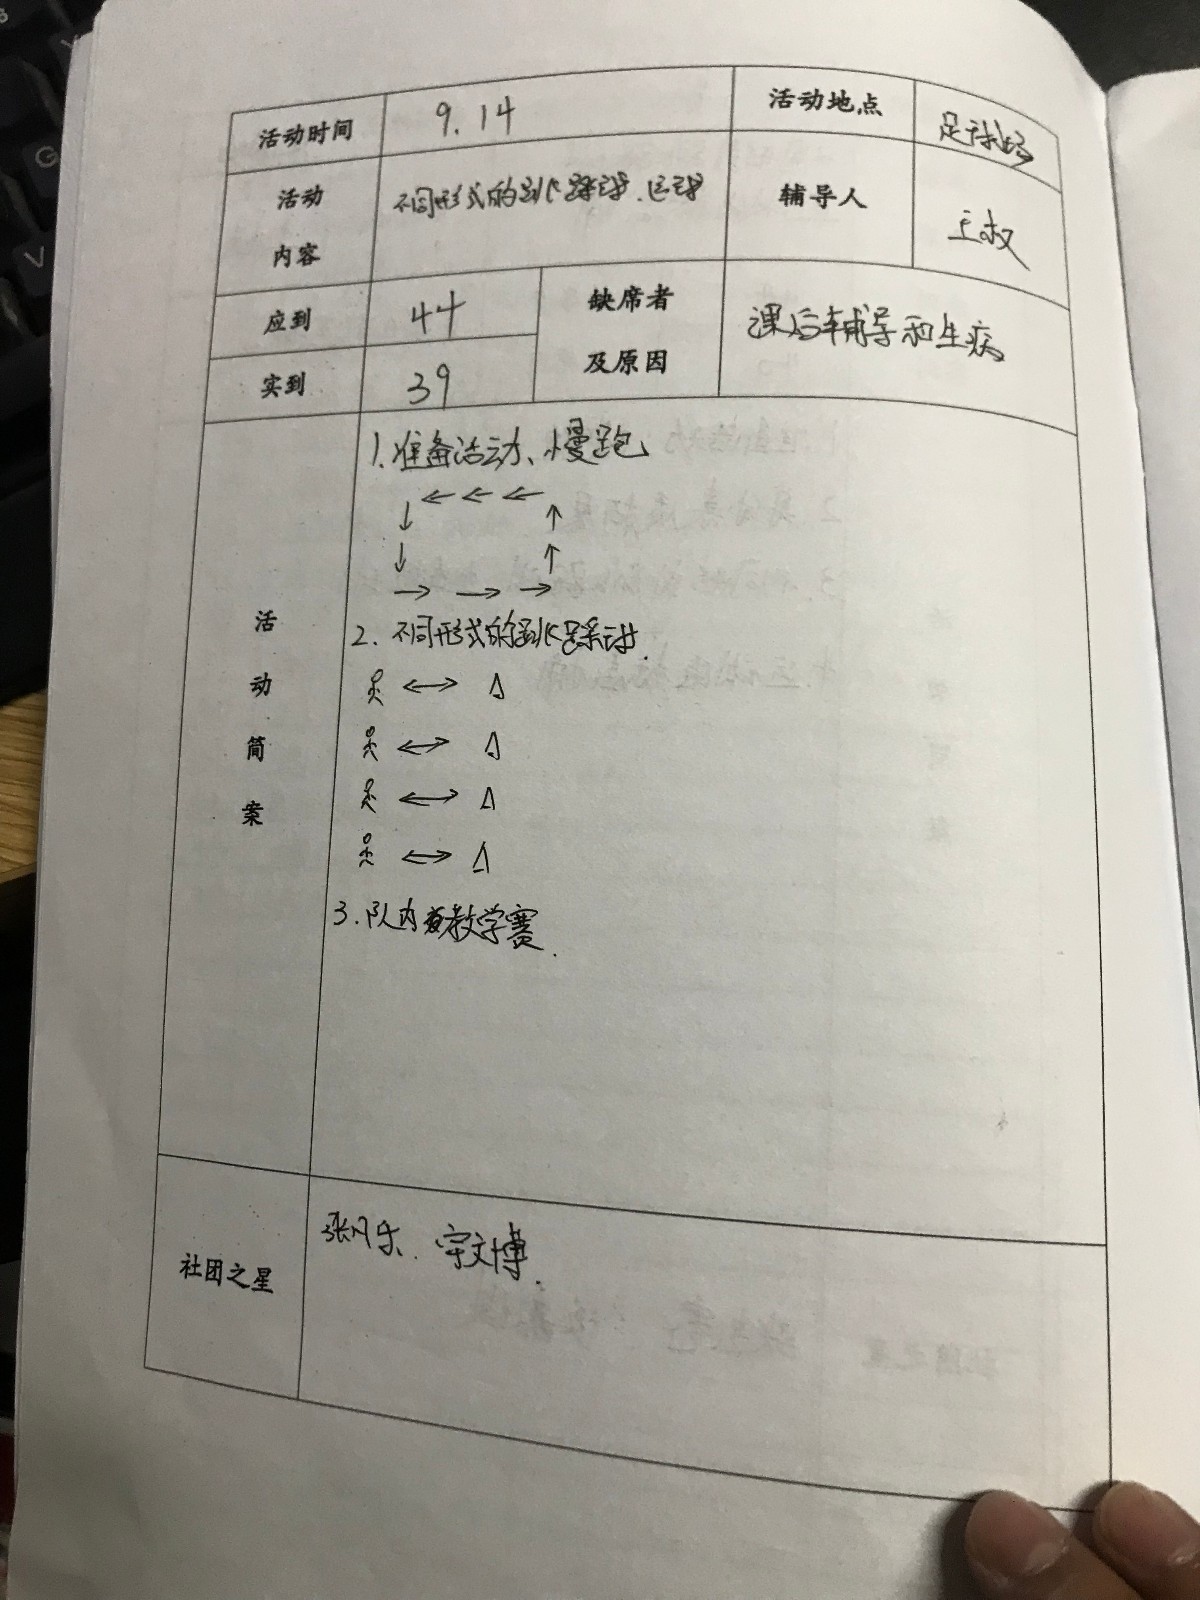 活动时间 9.14 活动地点 足球场
活动内容 不同形式的跳踩球.运球 辅导人 王权
应到 44 缺席者及原因 课后辅导和生病
实到 39
活动简案
1.准备活动、慢跑
2.不同形式的跳踩球.
3.队内教学赛.
社团之星 张凡乐. 宇文博.